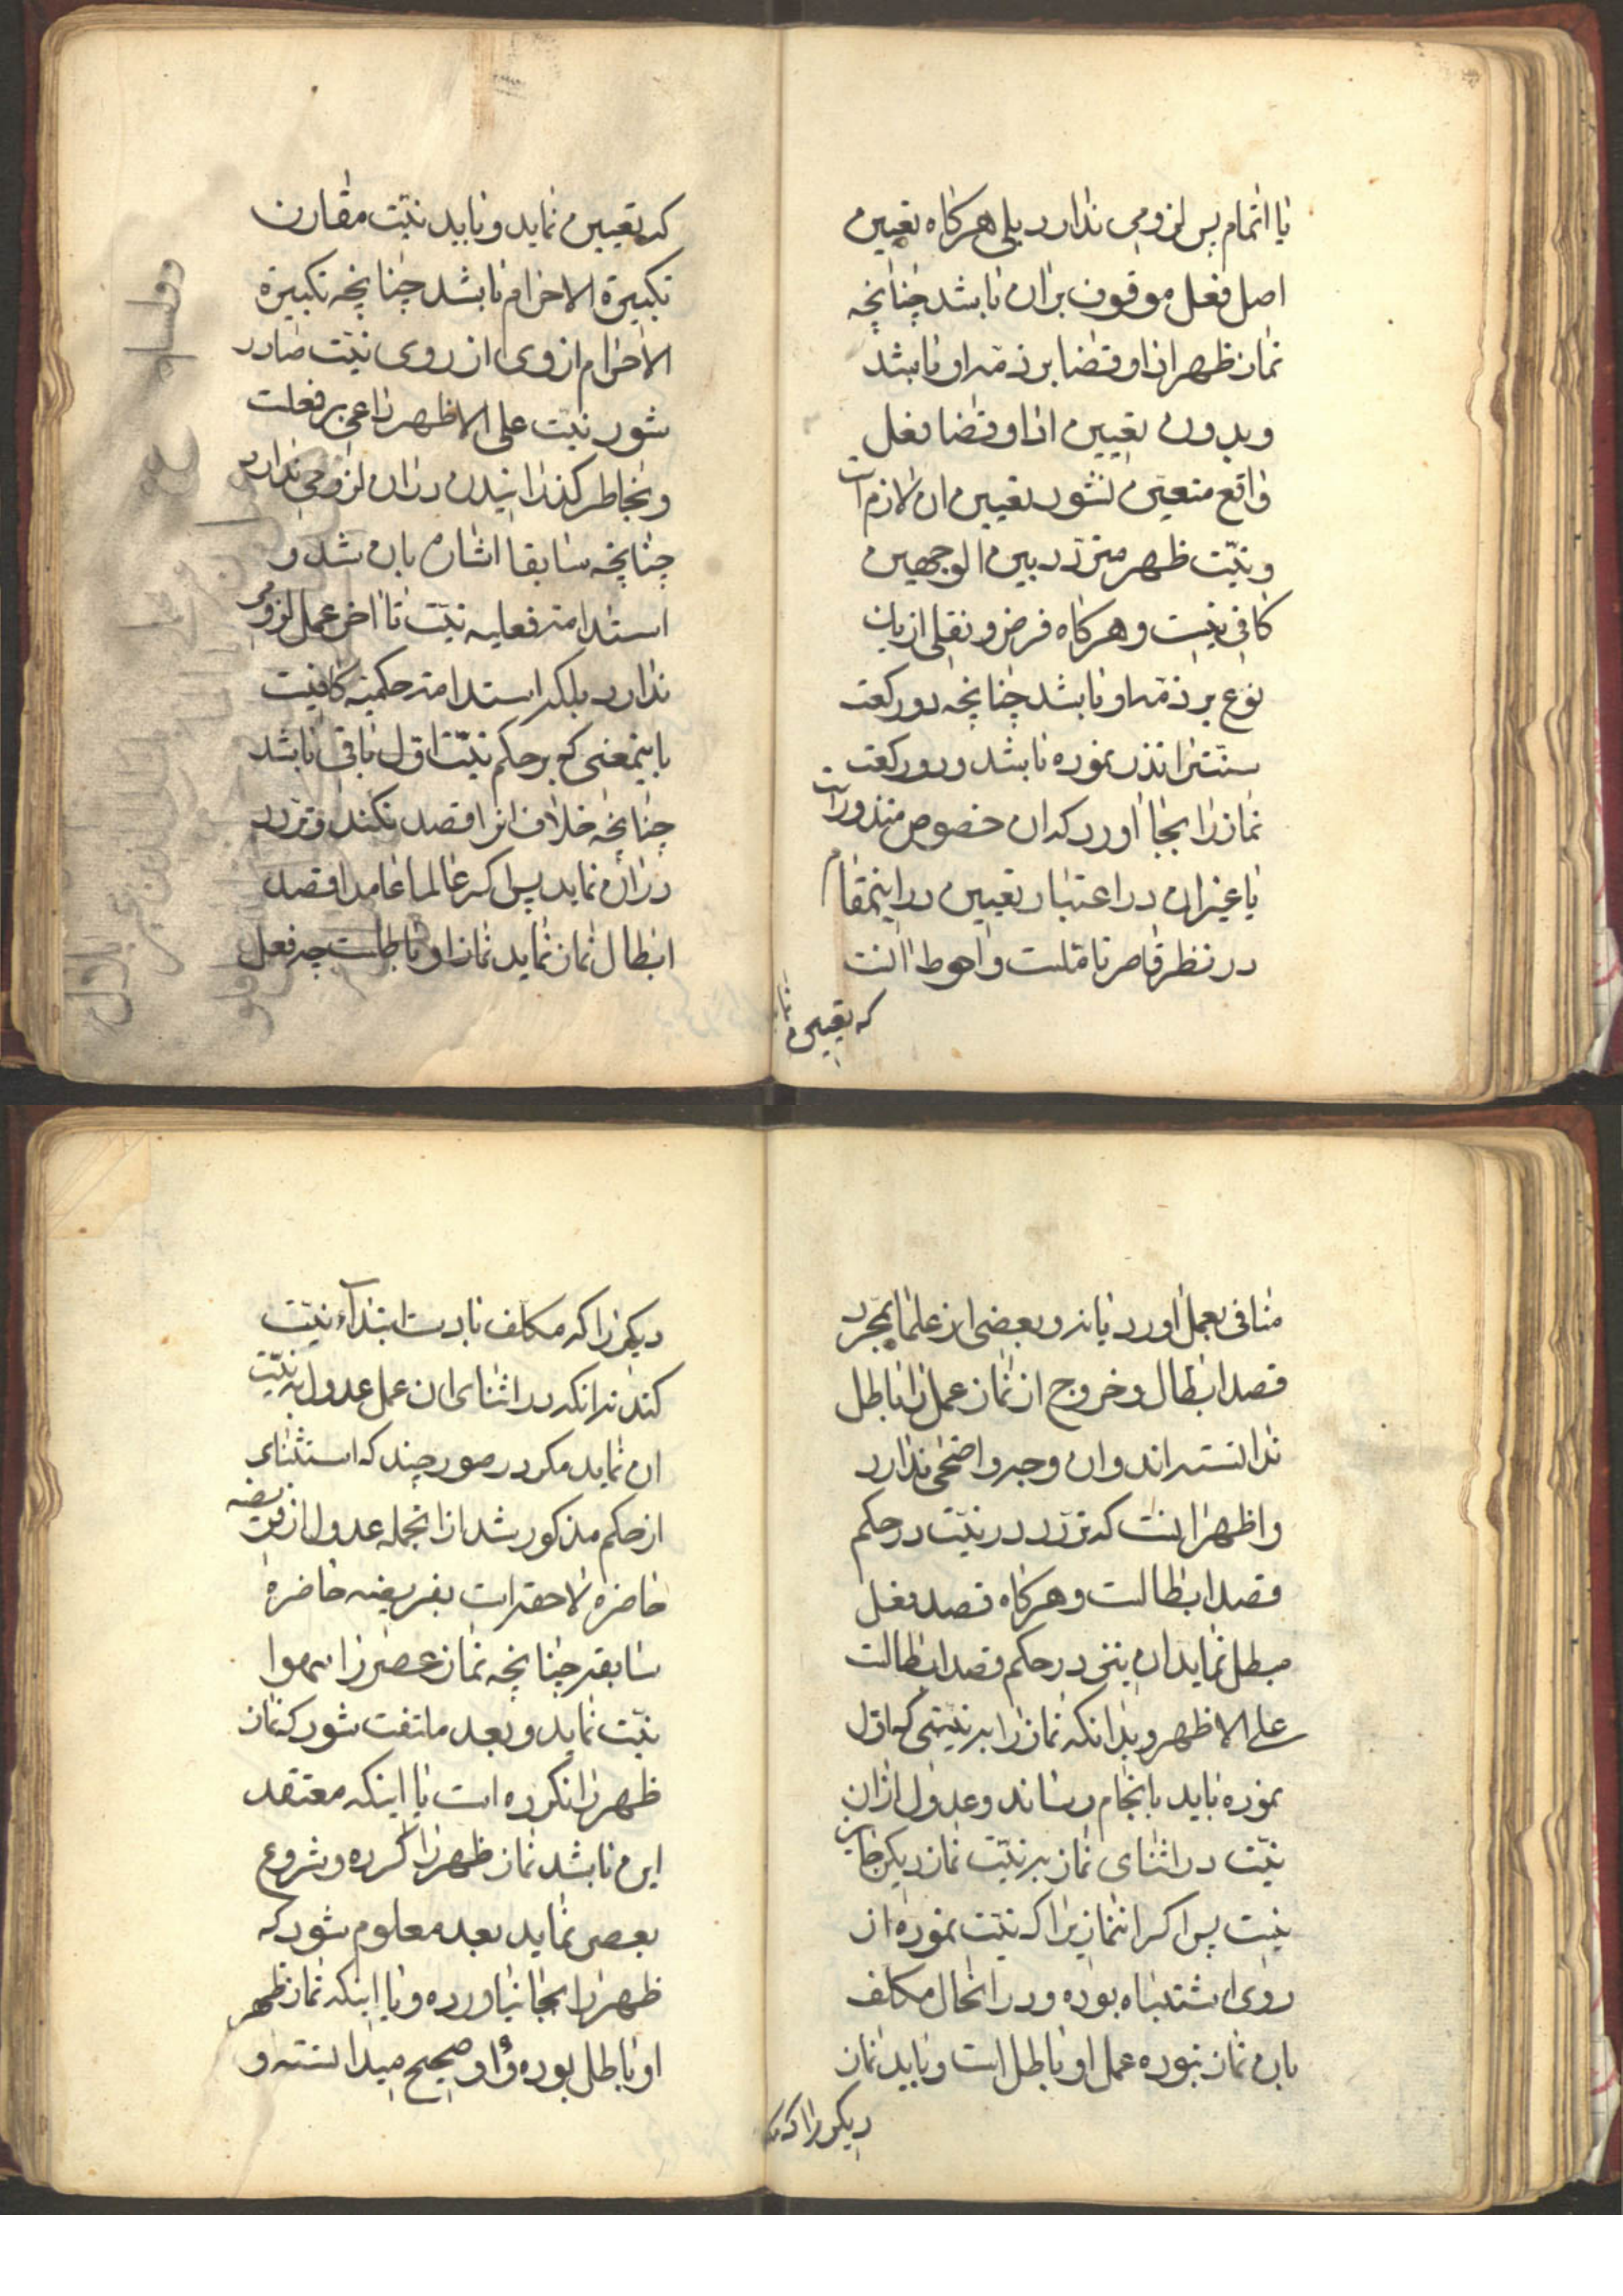 یا اتمام پس لزومی ندارد بلی هرکاه تعیین
اصل فعل موقوف بران باشد چنانچه
نماز ظهر ادا و قضا بر ذمه او باشد
و بدون تعیین ادا و قضا فعل
واقع متعین نشود تعیین ان لازم است
و نیّت ظهر متردّد بین الوجهین
کافی نیست و هرکاه فرض و نفلی از یک
نوع بر ذمّه او باشد چنانچه دو رکعت
سنّتی را نذر نموده باشد و دو رکعت
نماز را بجا اورد که ان خصوص منذور است
یا غیر ان در اعتبار تعیین در اینمقام
در نظر قاصر تاملست و احوط انست
که تعیین
که تعیین نماید و باید نیّت مقارن
تکبیرة الاحرام باشد چنانچه تکبیرة
الاحرام از وی از روی نیّت صادر
شود نیّت علی الاظهر داعی بر فعلست
و بخاطر کذرانیدن دران لزومی ندارد
چنانچه سابقا اشاره بان شد و
استدامه فعلیه نیّت تا اخر عمل لزومی
ندارد بلکه استدامه حکمیّه کافیست
باینمعنی که بر حکم نیّت اوّل باقی باشد
چنانچه خلاف انرا قصد نکند و تردّد
دران نماید پس اکر عالما عامدا قصد
ابطال نماز نماید نماز او باطلست چه فعل
منافی بعمل اورد یا نه و بعضی از علما بمجرد
قصد ابطال و خروج از نماز عمل را باطل
ندانسته اند و ان وجه واضحی ندارد
و اظهر اینست که تردّد در نیّت در حکم
قصد ابطالست و هرکاه قصد فعل
مبطل نماید ان نیز در حکم قصد ابطالست
علی الاظهر و بدانکه نماز را بر نیّتی که اوّل
نموده باید بانجام رساند و عدول از ان
نیّت در اثنای نماز بر نیّت نماز دیکر جایز
نیست پس اکر انماز یرا که نیّت نموده از
روی اشتباه بوده و در انحال مکلف
بان نماز نبوده عمل او باطل است و باید نماز
دیکر را که
دیکر را که مکلف بانست ابتدآء نیّت
کند نه انکه در اثنای ان عمل عدول به نیّت
ان نماید مکر در صور چند که استثنای
از حکم مذکور شد از انجمله عدول از فریضه
حاضره لاحقه است بفریضه حاضره
سابقه چنانچه نماز عصر را سهوا
نیّت نماید و بعد ملتفت شود که نماز
ظهر را نکرده است یا اینکه معتقد
این باشد نماز ظهر را کرده و شروع
بعصر نماید بعد معلوم شود که
ظهر را بجا نیاورده و یا اینکه نماز ظهر
او باطل بوده و او صحیح میدانسته و